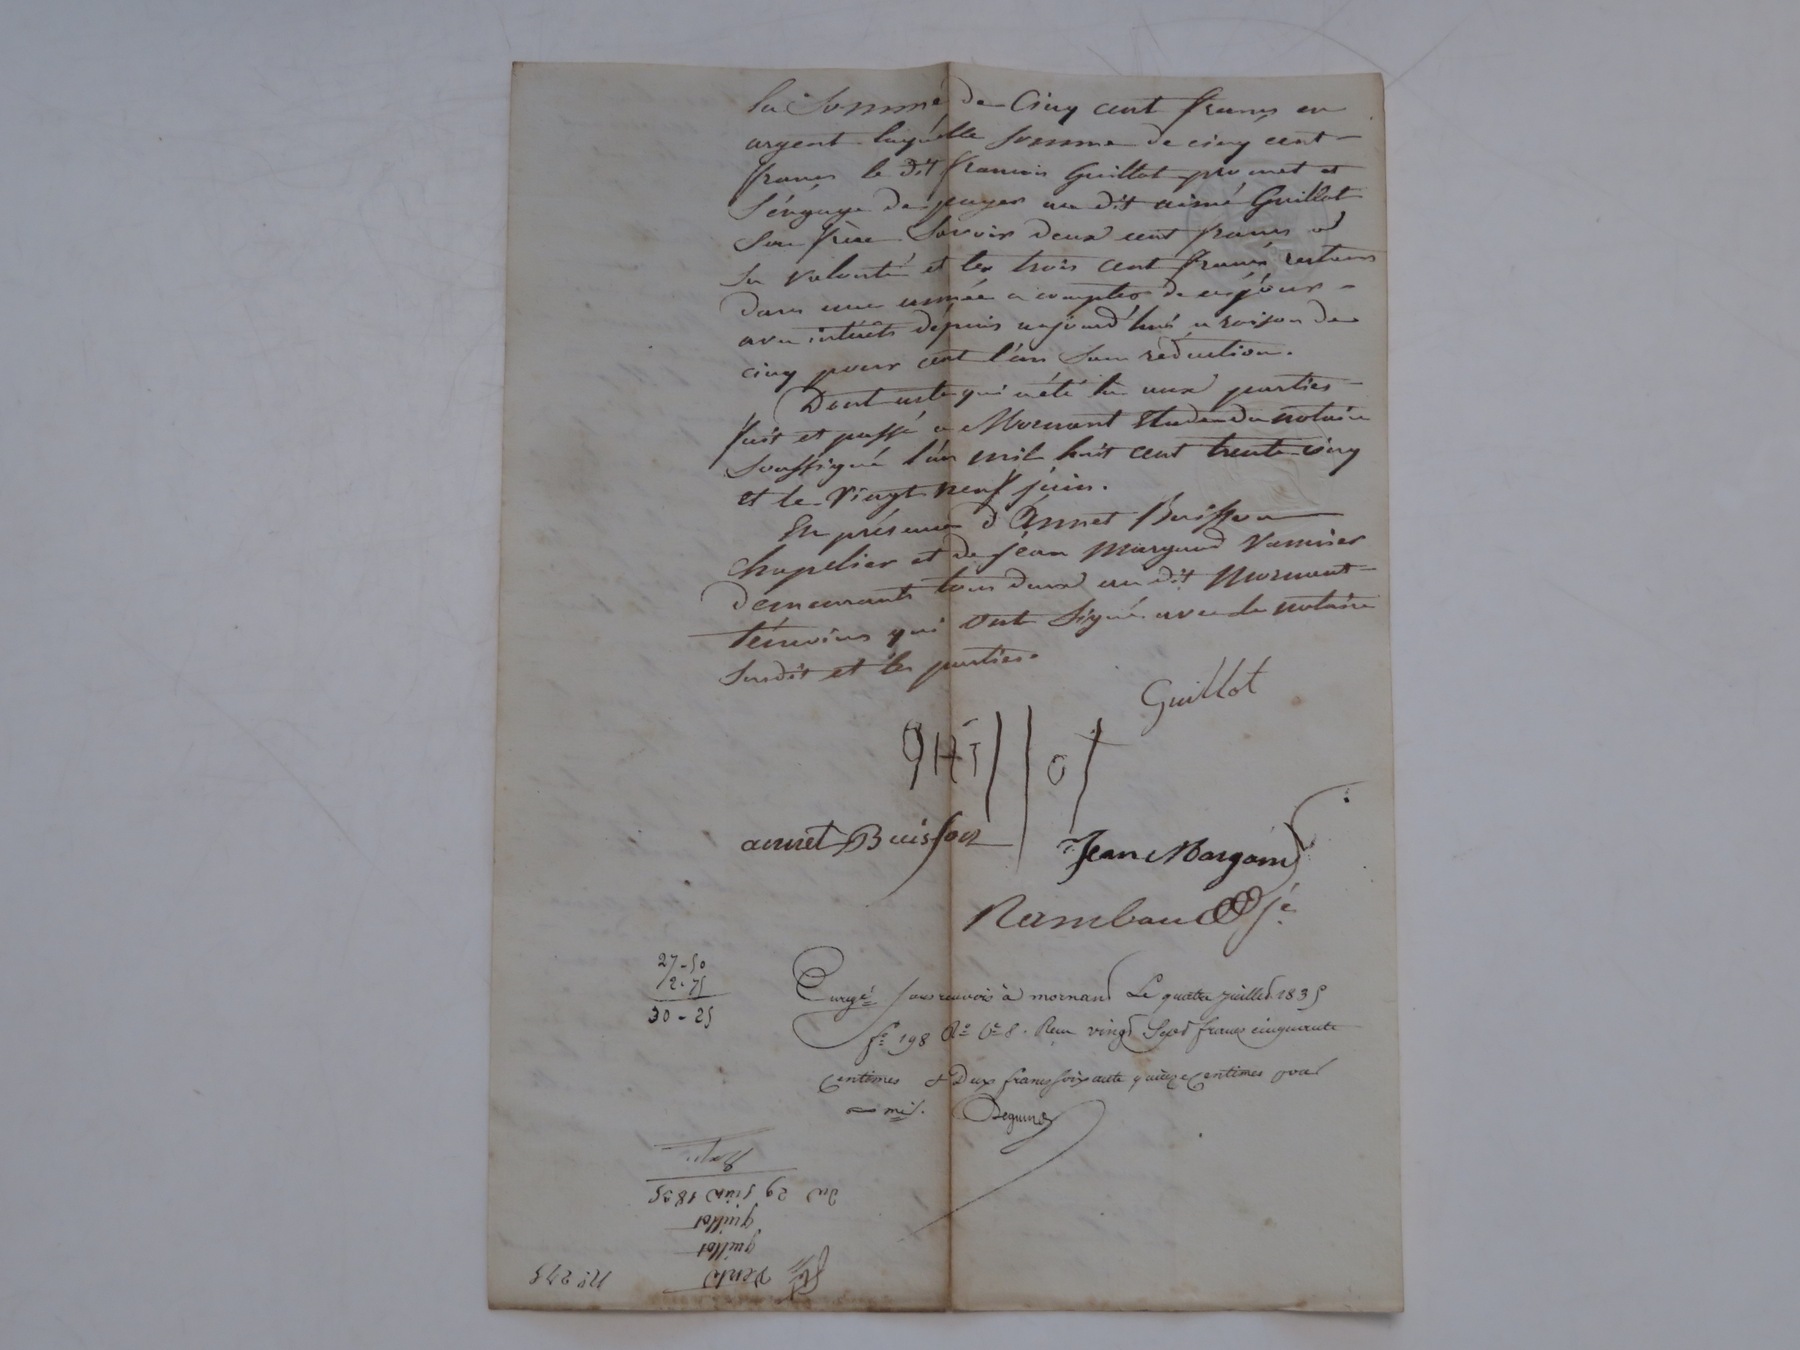 la Somme de Cinq cent francs en
argent laquelle somme de cinq cent
francs le dit francois Guillot promet et
s'éngage de payer au dit aimé Guillot
Son frère Savoir deux cent francs a
sa volonté et les trois cent francs restans
dans une année a compter de ce jour
avec intérêts dépuis aujourd'hui a raison de
cinq pour cent l'an Sans réduction.
Dont acte qui a été lu aux parties
fait et passé a Mornant Etude du notaire
soussigné l'an mil huit cent trente cinq
et le vingt neuf juin.
En présence d'Annet Buisson
chapelier et de jéan Margand vannier
demeurants tous deux au dit Mornant
témoins qui ont Signé avec le notaire
susdit et les parties.
Guillot
guillot
annet Buisson
Jean Margand
Rambaud je.
27-50
2-75
30-25
Enregé sans renvois à mornant Le quatre juillet 1835
fo 198 Ro Ce 8. Recu vingt Sept francs cinquante
centimes & Deux francs soixante quinze Centimes pour
Deguin
du 29 juin 1835
guillot
guillot
Vente
No 275